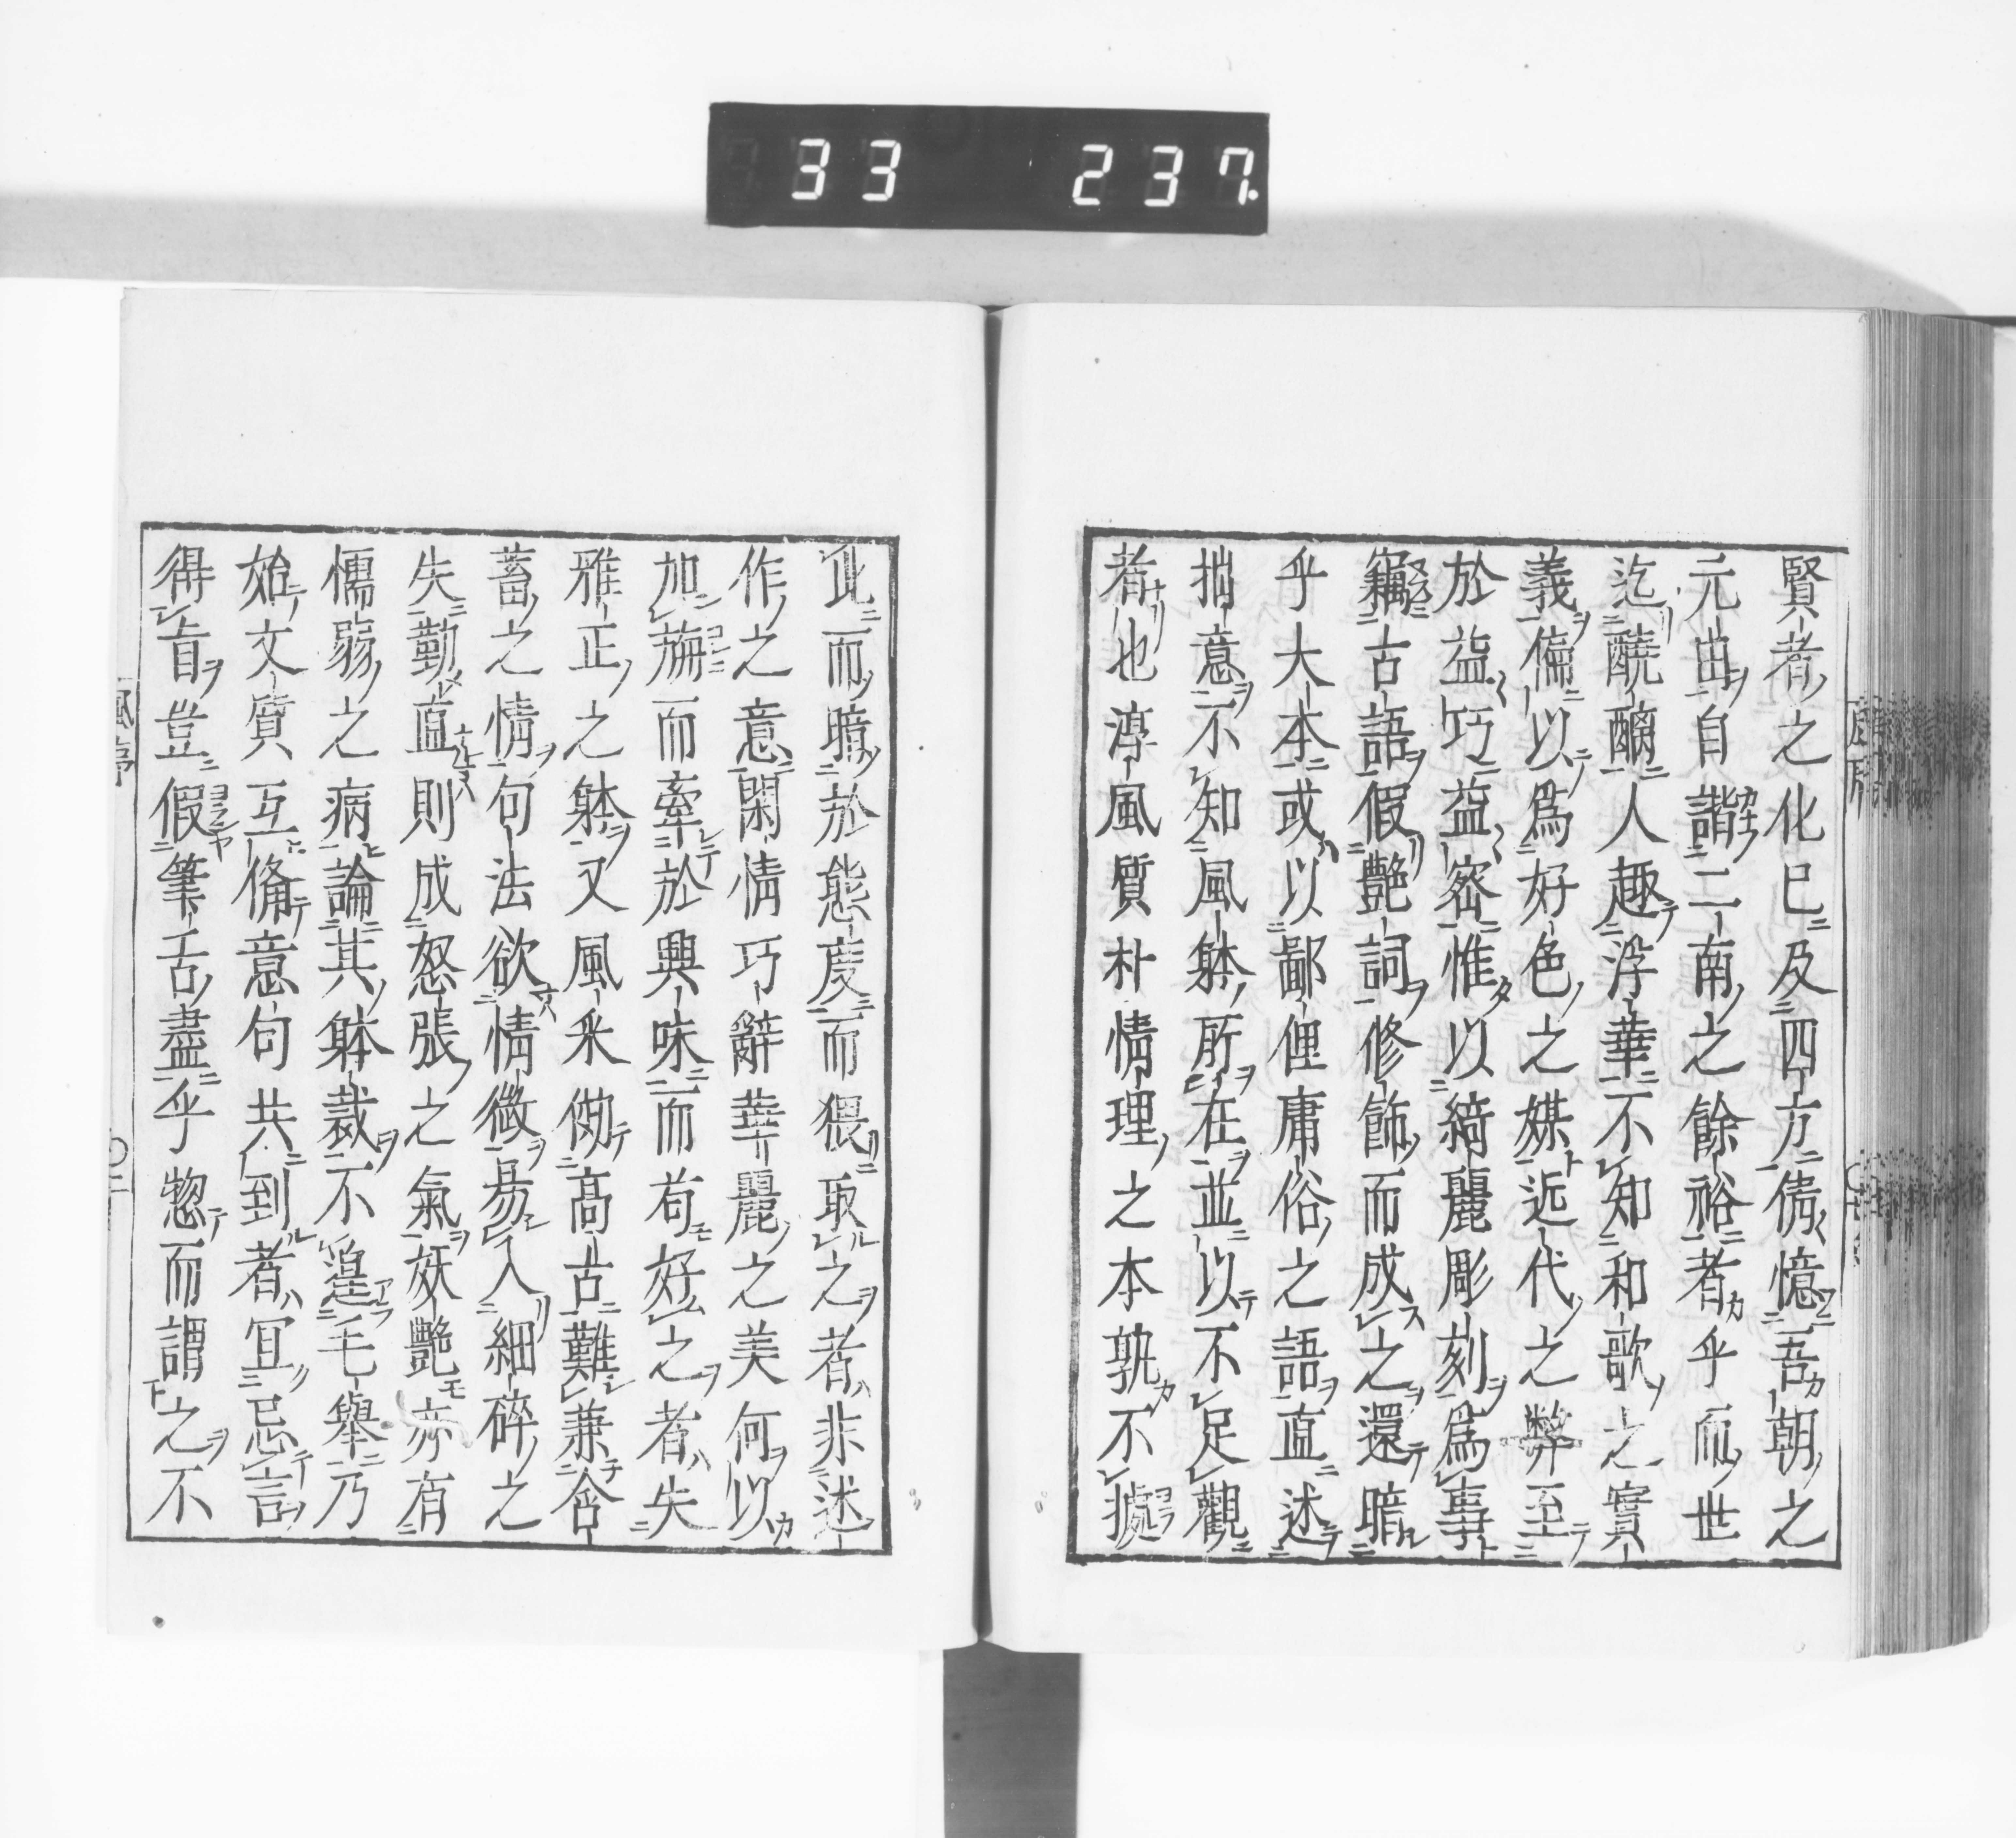 33 237
賢者之化已及四方倩憶吾朝之
元出自諧二南之餘裕者乎而世
迄醨人趣浮華不知和歌之實
義偏以爲好色之媒近代之弊至
於益巧益密惟以綺麗彫刻爲事
竊古語假艷詞修飾而成之還暗
乎大本或以鄙俚庸俗之語直述
拙意不知風躰所在並以不足觀
者也淳風質朴情理之本孰不據
而曠於態度而猥取之者非述
作之意閑情巧辭華麗之美何以
加旃而牽於興味而苟好之者失
雅正之躰又風采倣高古難兼含
蓄之情句法欲情徵易入細碎之
失勤直則成怒張之氣妖艷亦有
懦弱之病論其躰裁不遑毛舉乃
始文質互備意句共到者冝忘言
得旨豈假筆舌盡乎惣而謂之不
風序